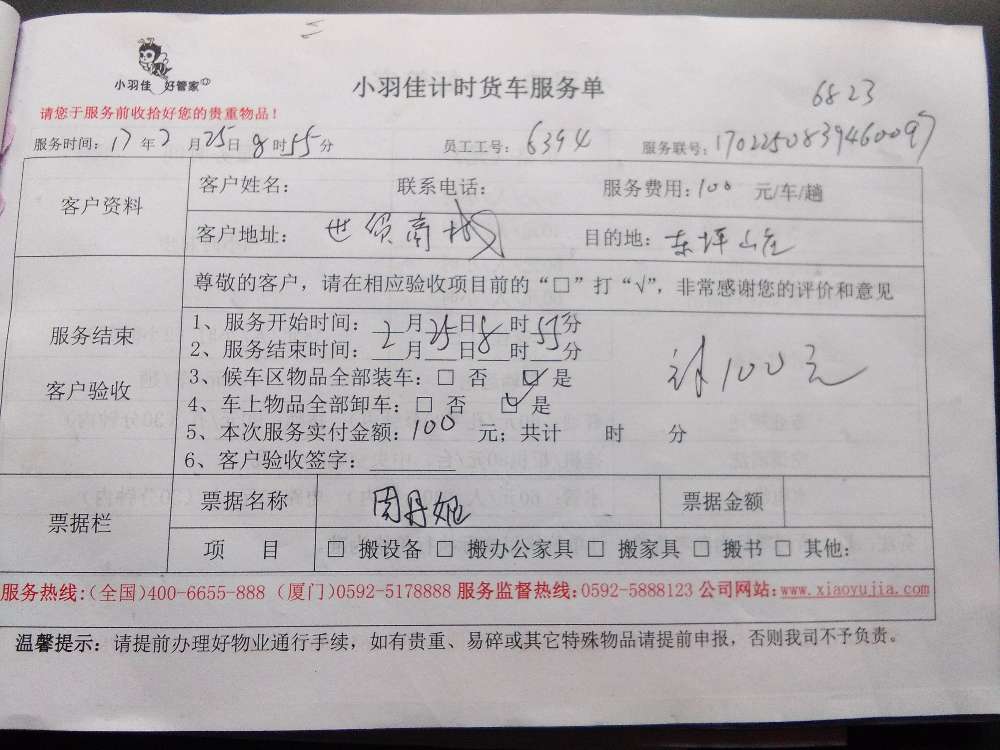 小羽佳 好管家
小羽佳计时货车服务单
6823
请您于服务前收拾好您的贵重物品！
服务时间：17年2月25日8时55分 员工工号：6394 服务联号：1702250839460097
客户资料
客户姓名： 联系电话： 服务费用：100 元/车/趟
客户地址：世贸商城 目的地：东坪山庄
服务结束
客户验收
尊敬的客户，请在相应验收项目前的“□”打“√”，非常感谢您的评价和意见
1、服务开始时间：2月25日8时55分
2、服务结束时间：___月___日___时___分
3、候车区物品全部装车：□ 否 ☑ 是
4、车上物品全部卸车：□ 否 ☑ 是
5、本次服务实付金额：100 元；共计 时 分
6、客户验收签字：________
计100元
票据栏
票据名称 周丹妮 票据金额
项 目 □ 搬设备 □ 搬办公家具 □ 搬家具 □ 搬书 □ 其他：
服务热线：（全国）400-6655-888（厦门）0592-5178888 服务监督热线：0592-5888123 公司网站：www.xiaoyujia.com
温馨提示：请提前办理好物业通行手续，如有贵重、易碎或其它特殊物品请提前申报，否则我司不予负责。